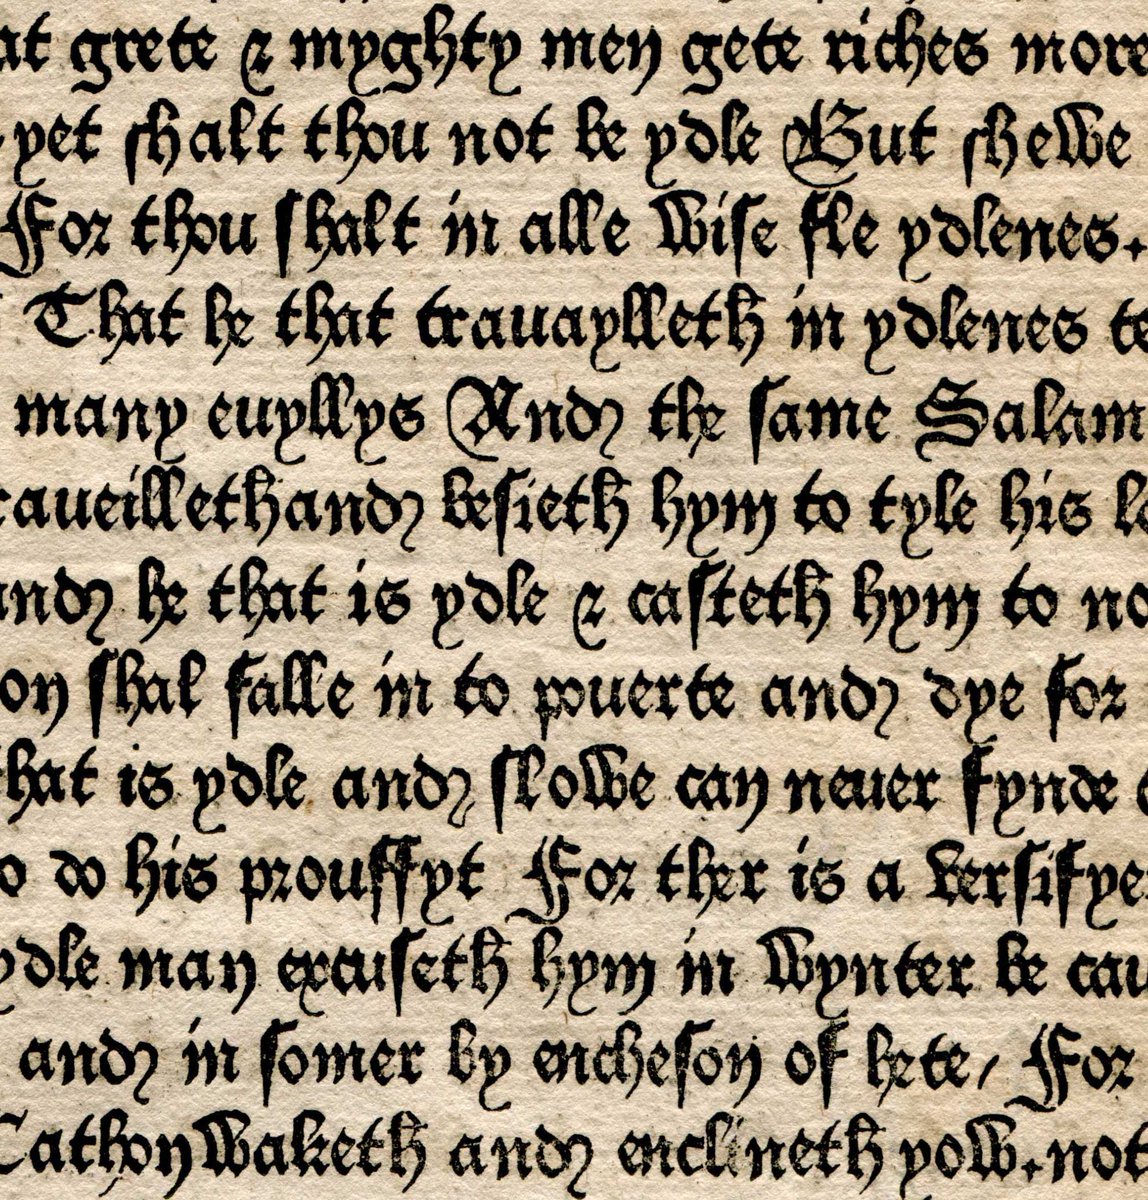 at grete & myghty men gete riches more
yet shalt thou not be ydle But shewe
For thou shalt in alle wise fle ydlenes.
That he that trauaylleth in ydlenes te
many euyllys And the same Salam
raueilleth and besieth hym to tyle his l
and he that is ydle & casteth hym to no
on shal falle in to pouerte and dye for
that is ydle and slowe can neuer fynde
o do his prouffyt For ther is a versifye
ydle man excuseth hym in wynter be cau
and in somer by encheson of hete / For
Cathon waketh and enclineth yow. not